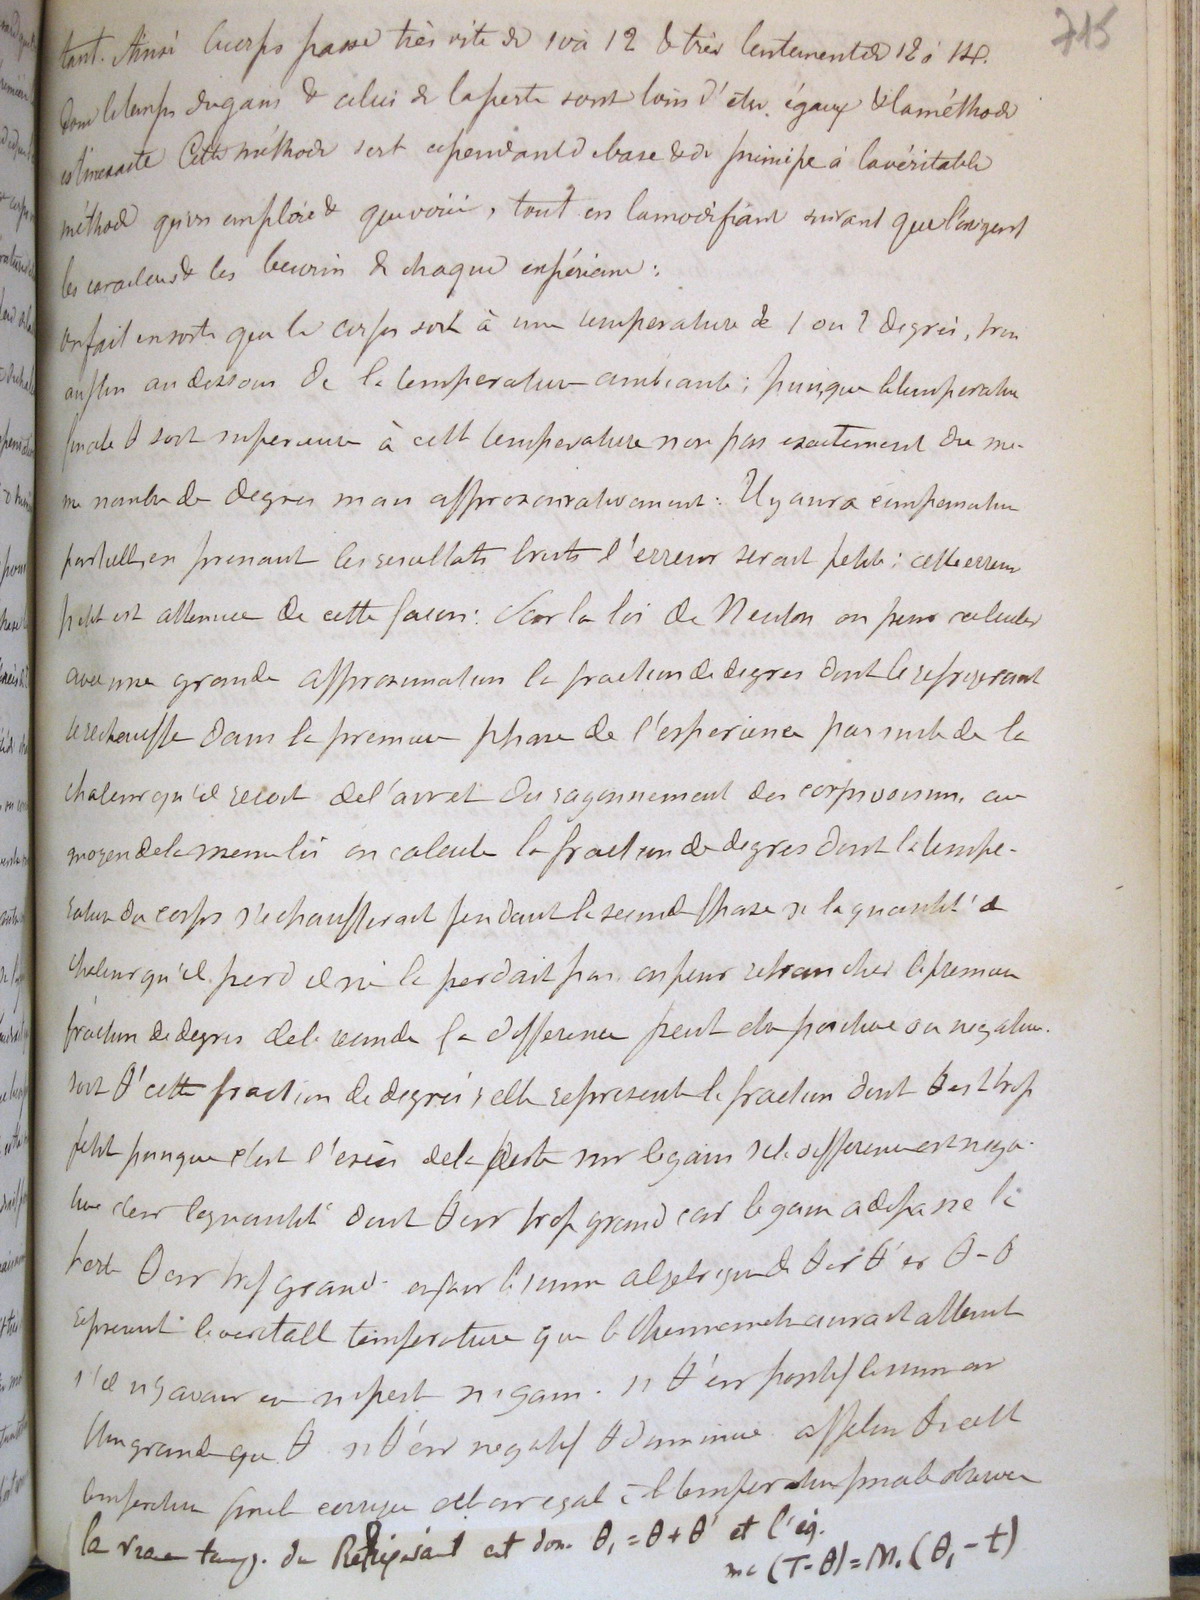 715
tant. Ainsi le corps passe très vite de 10 à 12 & très lentement de 12 à 14.
Donc le temps du gain & celui de la perte sont loin d'être égaux & la méthode
est inexacte Cette méthode sert cependant de base & de principe à la véritable
méthode qu'on emploie & que voici, tout en la modifiant suivant que l'exigent
les & les besoin de chaque expérience :
on fait en sorte que le corps soit à une temperature de 1 ou 2 degrés, trois
au plus au dessous de la temperature ambiante ; puisque la temperature
finale θ soit superieure à cette temperature non pas exactement du me-
me nombre de degres mais approximativement : Il y aura compensation
partielle, en prenant les resultats bruts l'erreur serait petite ; cette erreur
petite est attenuee de cette facon : Par la loi de Newton on peut calculer
avec une grande approximation la fraction de degres dont le refrigerant
se rechauffe dans la premiere phase de l'experience par suite de la
chaleur qu'il recoit de l'air et du rayonnement des corps voisins. au
moyen de la meme loi on calcule la fraction de degres dont la tempe-
rature du corps s'echaufferait pendant la seconde phase si la quantité de
chaleur qu'il perd il ne la perdait pas. on peut retrancher la premiere
fraction de degres de la seconde la difference peut etre positive ou negative.
soit θ' cette fraction de degrés ; elle represente la fraction dont θ est trop
petit puisque c'est l'excès de la perte sur le gain si la difference est nega-
tive c'est la quantité dont θ est trop grand car le gain a depassé la
perte θ est trop grand. on fait la somme algebrique de θ et θ' et θ-θ
represente la veritable temperature que le thermometre aurait atteint
s'il n'y avait eu ni perte ni gain. si θ' est positif la somme est
plus grande que θ si θ' est negatif θ diminue. appelons θ, cette
temperature finale corrigee elle est egale à la temperature finale observee
la vraie temp. du Réfrigérant est donc θ₁ = θ + θ' et l'éq.
mc (T-θ) = M. (θ₁ - t)